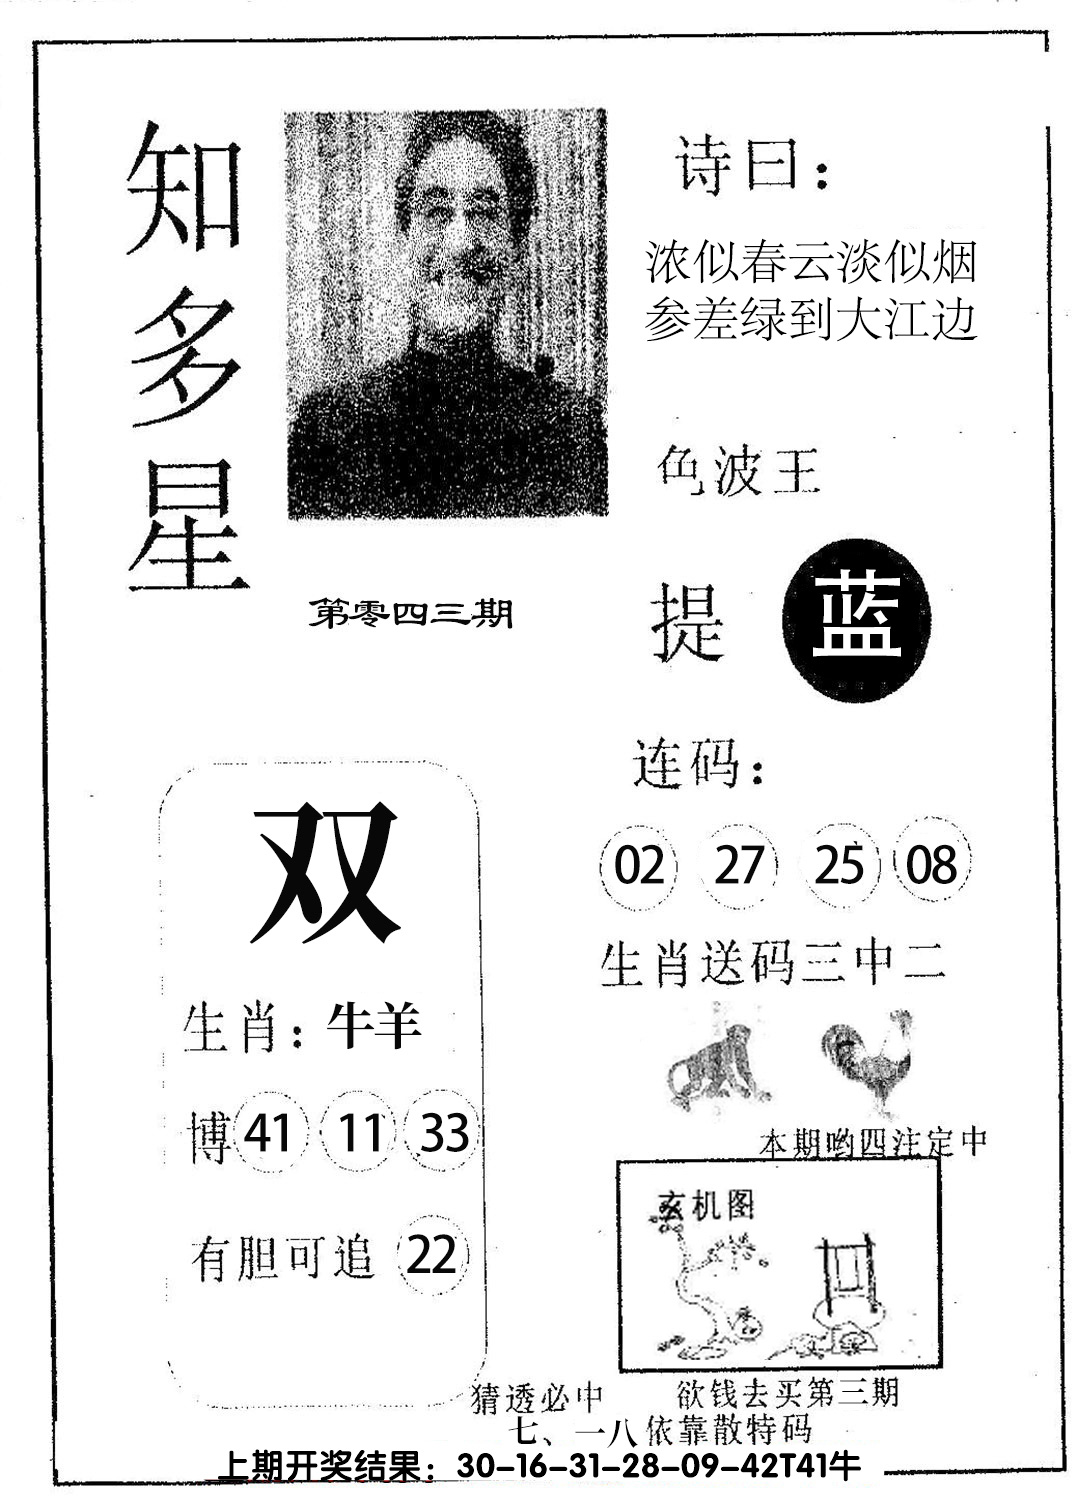 知多星
诗曰：
浓似春云淡似烟
参差绿到大江边
色波王
提 蓝
第零四三期
连码：
02 27 25 08
生肖送码三中二
本期哟四注定中
双
生肖：牛羊
博 41 11 33
有胆可追 22
玄机图
猜透必中 欲钱去买第三期
七、一八依靠散特码
上期开奖结果：30-16-31-28-09-42T41牛